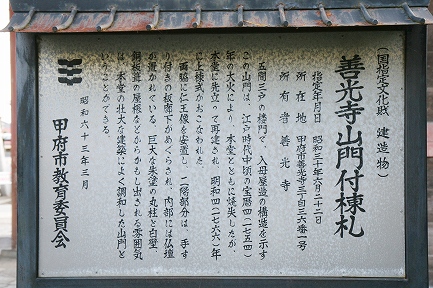 (国指定文化財 建造物)
善光寺山門付棟札
指定年月日 昭和三十年六月二十二日
所在地 甲府市善光寺三丁目三六番一号
所有者 善光寺
五間三戸の楼門で、入母屋造の構造を示す
この山門は、江戸時代中頃の宝暦四(一七五四)
年の大火により、本堂とともに焼失したが、
本堂に先立って再建され、明和四(一七六七)年
に上棟式がおこなわれた。
両脇に仁王像を安置し、二階部分は、手す
り付きの板廊下がめぐらされ、内部には仏壇
が置かれている。巨大な朱塗の丸柱と白壁、
銅板造の屋根などからかもし出される雰囲気
は、本堂の壮大な建築によく調和した山門と
いうことができる。
昭和六十三年三月
甲府市教育委員会